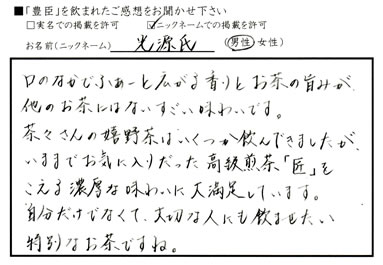 ■「豊臣」を飲まれたご感想をお聞かせ下さい
□実名での掲載を許可 ☑ニックネームでの掲載を許可
お名前(ニックネーム) 光源氏 (男性・女性)
口のなかでふぁーと広がる香りとお茶の旨みが、
他のお茶にはないすごい味わいです。
茶々さんの嬉野茶はいくつか飲んできましたが、
いままでお気に入りだった高級煎茶「匠」を
こえる濃厚な味わいに大満足しています。
自分だけでなくて、大切な人にも飲ませたい
特別なお茶ですね。